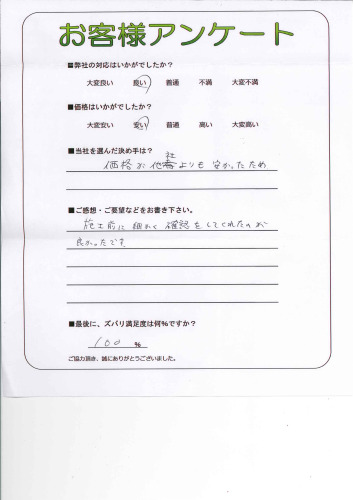 お客様アンケート
■弊社の対応はいかがでしたか?
大変良い 良い 普通 不満 大変不満
■価格はいかがでしたか?
大変安い 安い 普通 高い 大変高い
■当社を選んだ決め手は?
価格が他社よりも安かったため
■ご感想・ご要望などをお書き下さい。
施工前に細かく確認をしてくれたのが
良かったです
■最後に、ズバリ満足度は何%ですか?
100 %
ご協力頂き、誠にありがとうございました。